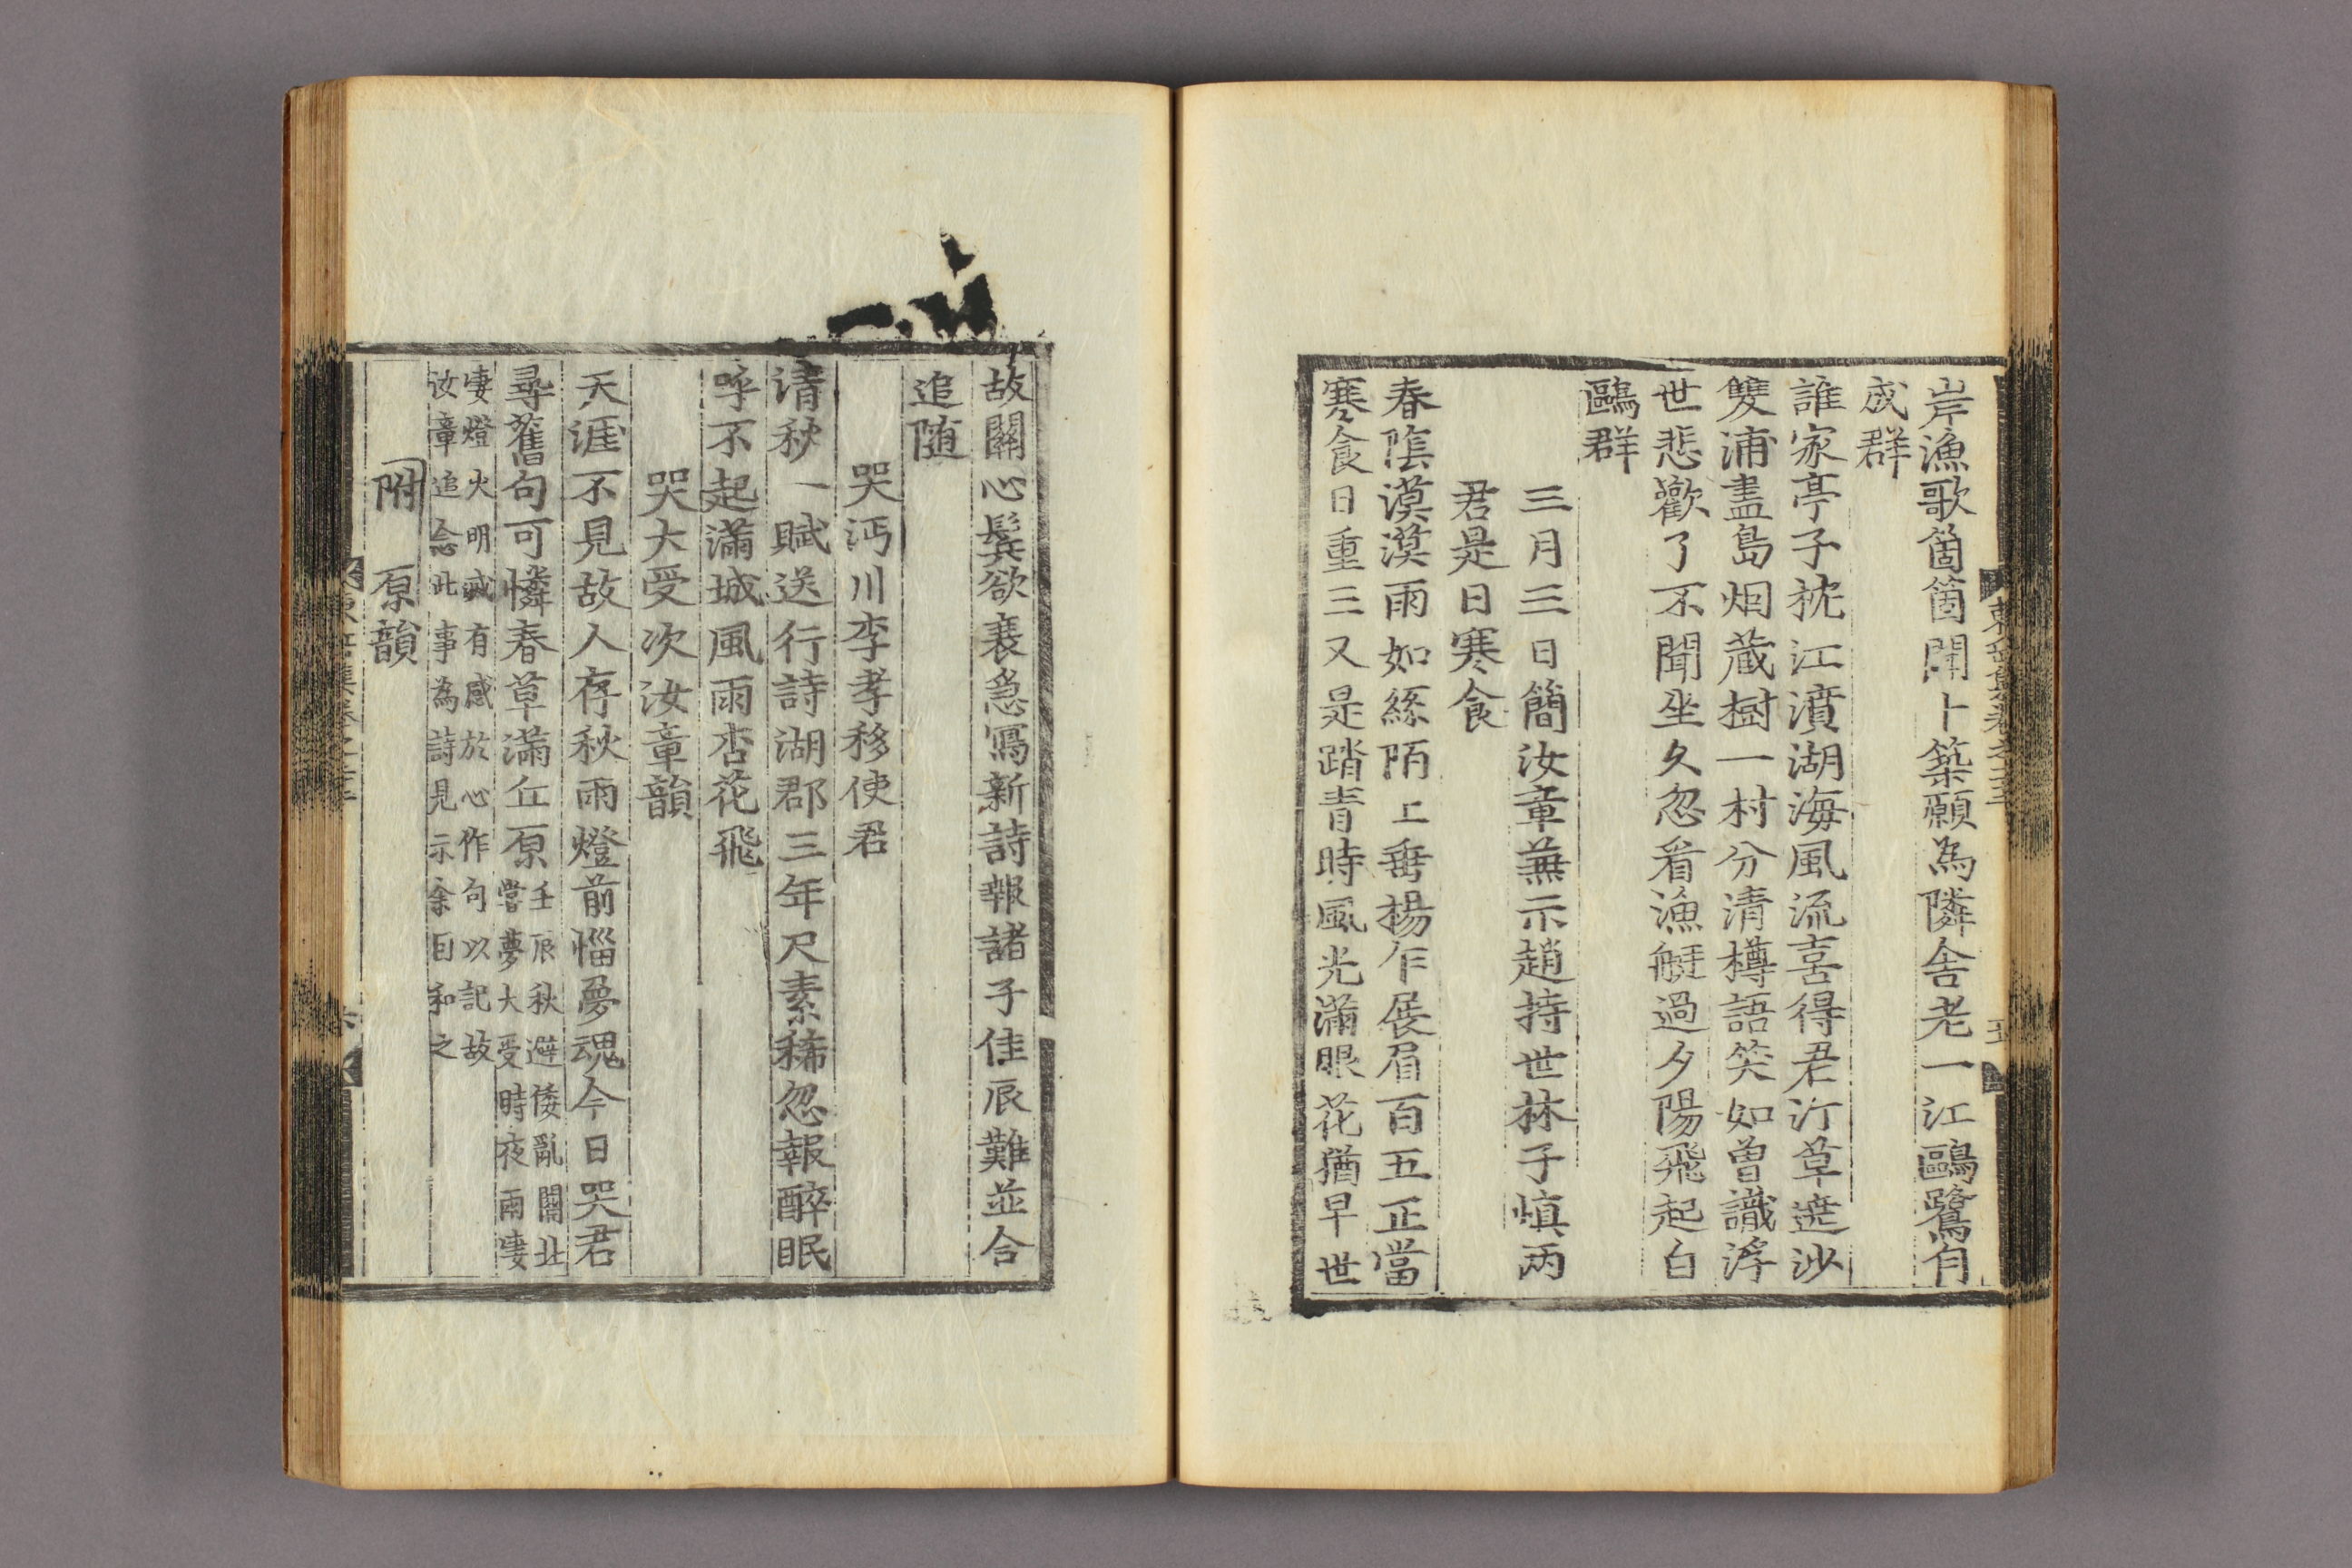 岸漁歌箇箇聞卜築願為隣舍老一江鷗鷺自
成群
誰家亭子枕江濆湖海風流喜得君汀草遮沙
雙浦盡島烟藏樹一村分清樽語笑如曾識浮
世悲歡了不聞坐久忽看漁艇過夕陽飛起白
鷗群
三月三日簡汝章兼示趙持世林子愼两
君是日寒食
春陰漠漠雨如絲陌上垂楊乍展眉百五正當
寒食日重三又是踏青時風光滿眼花猶早世
故關心鬂欲衰急寫新詩報諸子佳辰難並合
追随
哭沔川李孝移使君
清秋一賦送行詩湖郡三年尺素稀忽報醉眠
呼不起滿城風雨杏花飛
哭大受次汝章韻
天涯不見故人存秋雨燈前惱夢魂今日哭君
尋舊句可憐春草滿丘原
壬辰秋避倭亂關北
嘗夢大受時夜雨凄
凄燈火明滅有感於心作句以記故
汝章追念此事為詩見示余自和之
附 原韻